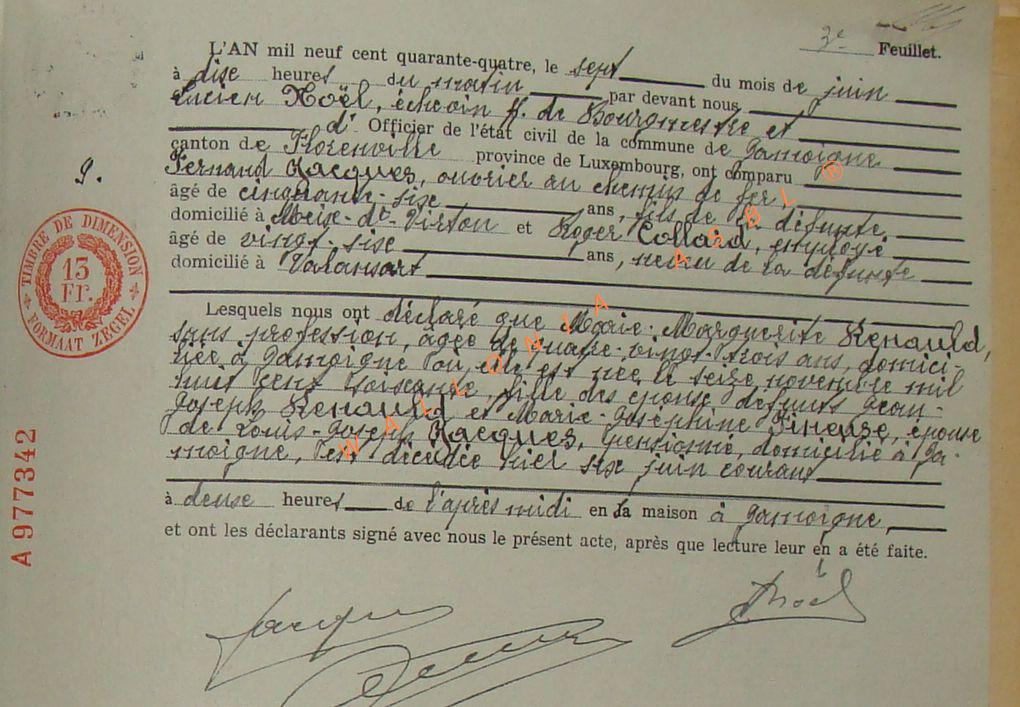 3e Feuillet.
L'AN mil neuf cent quarante-quatre, le sept du mois de juin
à dise heures du matin par devant nous
Lucien Noël, échevin ff. de Bourgmestre et
d' Officier de l'état civil de la commune de Jamoigne
canton de Florenville province de Luxembourg, ont comparu
9. Fernand Jacques, ouvrier au chemin de fer,
âgé de cinquante-sise ans, fils de la défunte
domicilié à Meise-dt-Virton et Roger Collard, employé
âgé de vingt-sise ans, neveu de la défunte
domicilié à Valansart
Lesquels nous ont déclaré que Marie-Marguerite Renauld,
sans profession, âgée de quatre-vingt-trois ans, domici-
née à Jamoigne où elle est née le seize novembre mil
huit cent soixante, fille des épouse défunts Jean-
Joseph Renauld et Marie-Joséphine Pineuse, épouse
de Louis-Joseph Jacques, pensionné, domicilié à Ja-
moigne, est décédée hier six juin courant
à deuse heures de l'après midi en sa maison à Jamoigne,
et ont les déclarants signé avec nous le présent acte, après que lecture leur en a été faite.
TIMBRE DE DIMENSION
13
Fr.
FORMAAT ZEGEL
A 977342
WALLONIA ASBL ®
Jacques
LNoël